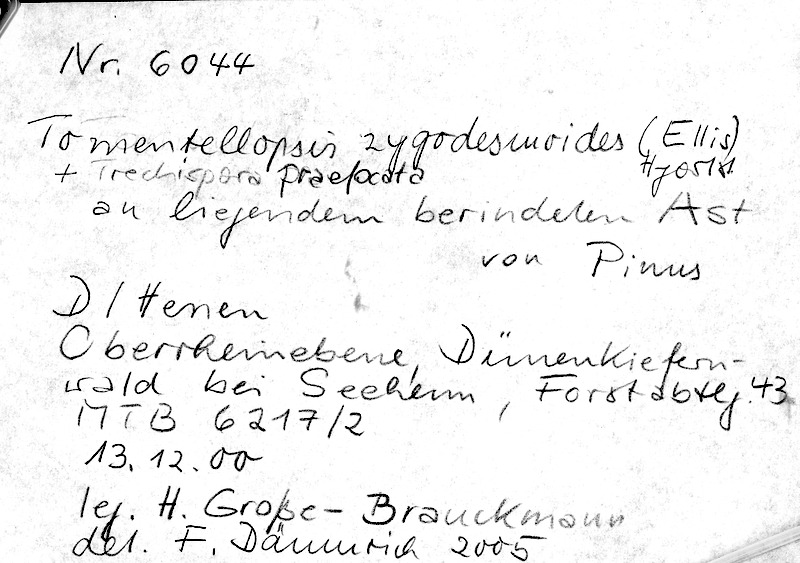 Nr. 6044
Tomentellopsis zygodesmoides (Ellis)
Hjortst
+ Trechispora praefocata
an liegendem berindeten Ast
von Pinus
D / Hessen
Oberrheinebene, Dünenkiefern-
wald bei Seeheim, Forstabtlg. 43
MTB 6217/2
13.12.00
leg. H. Große-Brauckmann
det. F. Dämmrich 2005